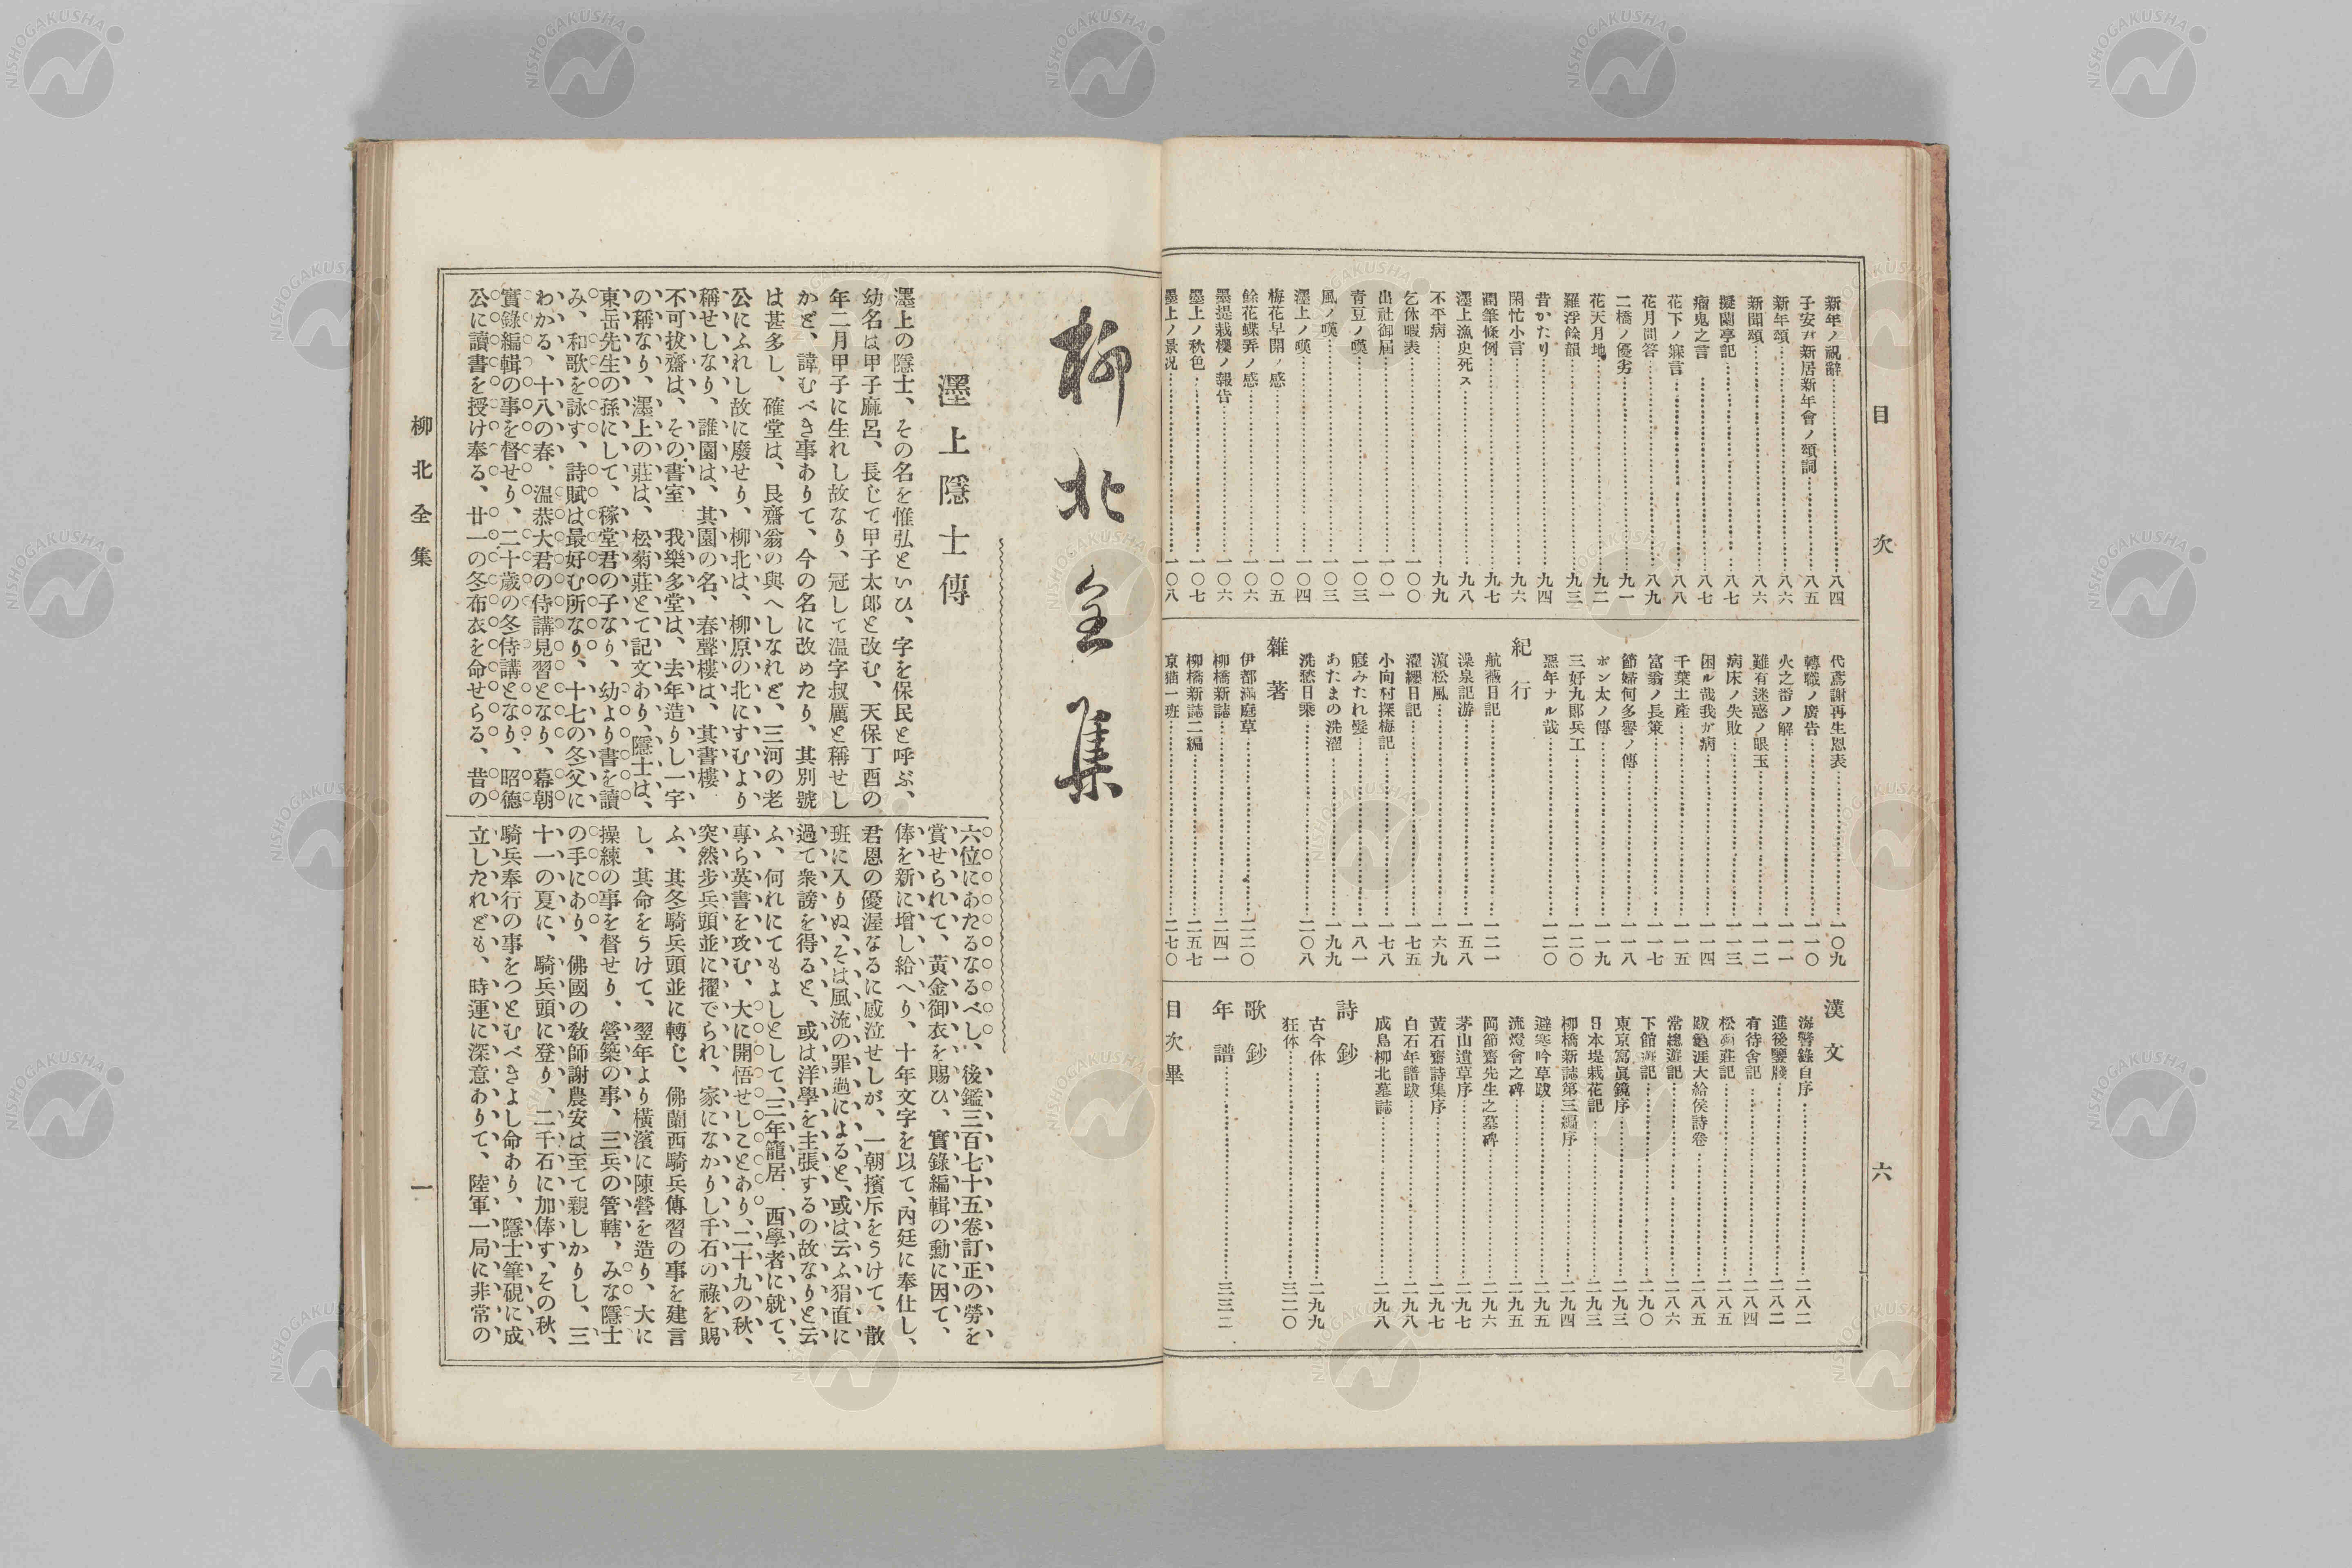 目次
六
新年ノ祝辭……八四
子安ガ新居新年會ノ頌詞……八五
新年頌……八六
新聞頌……八六
擬蘭亭記……八七
瘤鬼之言……八七
花下ノ寐言……八八
花月問答……八九
二橋ノ優劣……九一
花天月地……九二
羅浮餘韻……九三
昔かたり……九四
閑忙小言……九六
閣筆條例……九七
濹上漁史死ス……九八
不平病……九九
乞休暇表……一〇〇
出社御屆……一〇一
靑豆ノ嘆……一〇三
風ノ嘆……一〇三
濹上ノ嘆……一〇四
梅花早開ノ感……一〇五
餘花蝶弄ノ感……一〇六
墨堤栽櫻ノ報告……一〇六
墨上ノ秋色……一〇七
墨上ノ景況……一〇八
代鳶謝再生恩表……一〇九
轉職ノ廣告……一一〇
火之番ノ解……一一一
雖有迷惑ノ眼玉……一一二
病床ノ失敗……一一三
困ル哉我ガ病……一一四
千葉土產……一一五
富翁ノ長策……一一七
節婦何多譽ノ傳……一一八
ポン太ノ傳……一一九
三好九郞兵工……一二〇
惡年ナル哉……一二〇
紀行
航薇日記……一二一
澡泉記游……一五八
濱松風……一六九
濯纓日記……一七五
小向村探梅記……一七八
寢みたれ髮……一八一
あたまの洗濯……一九九
洗愁日乘……二〇八
雜著
伊都滿底草……二二〇
柳橋新誌……二四一
柳橋新誌二編……二五七
京猫一斑……二七〇
漢文
海警錄自序……二八二
進後鑒牋……二八二
有待舍記……二八四
松菊莊記……二八五
跋龜涯大給侯詩卷……二八五
常總遊記……二八六
下館遊記……二九〇
東京寫眞鏡序……二九三
日本堤栽花記……二九三
柳橋新誌第三編序……二九四
避寒吟草跋……二九五
流燈會之碑……二九五
岡節齋先生之墓碑……二九六
茅山遺草序……二九七
黃石齋詩集序……二九七
白石年譜跋……二九八
成島柳北墓誌……二九八
詩鈔
古今体……二九九
狂体……三二〇
歌鈔
年譜……三三二
目次畢
柳北全集
濹上隱士傳
濹上の隱士、その名を惟弘といひ、字を保民と呼ぶ、
幼名は甲子麻呂、長じて甲子太郞と改む、天保丁酉の
年二月甲子に生れし故なり、冠して温字叔厲と稱せし
かど、諱むべき事ありて、今の名に改めたり、其別號
は甚多し、確堂は、艮齋翁の與へしなれど、三河の老
公にふれし故に廢せり、柳北は、柳原の北にすむより
稱せしなり、誰園は、其園の名、春聲樓は、其書樓
不可拔齋は、その書室、我樂多堂は、去年造りし一字
の稱なり、濹上の莊は、松菊莊とて記文あり、隱士は、
東岳先生の孫にして、稼堂君の子なり、幼より書を讀
み、和歌を詠す、詩賦は最好む所なり、十七の冬父に
わかる、十八の春、温恭大君の侍講見習となり、幕朝
實錄編輯の事を督せり、二十歲の冬侍講となり、昭德
公に讀書を授け奉る、廿一の冬布衣を命せらる、昔の
六位にあたるなるべし、後鑑三百七十五卷訂正の勞を
賞せられて、黃金御衣を賜ひ、實錄編輯の勳に因て、
俸を新に增し給へり、十年文字を以て、內廷に奉仕し、
君恩の優渥なるに感泣せしが、一朝擯斥をうけて、散
班に入りぬ、そは風流の罪過によると、或は云ふ狷直に
過て衆謗を得ると、或は洋學を主張するの故なりと云
ふ、何れにてもよしとして、三年籠居、西學者に就て、
專ら英書を攻む、大に開悟せしことあり、二十九の秋、
突然步兵頭並に擢でられ、家になかりし千石の祿を賜
ふ、其冬騎兵頭並に轉じ、佛蘭西騎兵傳習の事を建言
し、其命をうけて、翌年より橫濱に陳營を造り、大に
操練の事を督せり、營築の事、三兵の管轄、みな隱士
の手にあり、佛國の敎師謝農安は至て親しかりし、三
十一の夏に、騎兵頭に登り、二千石に加俸す、その秋、
騎兵奉行の事をつとむべきよし命あり、隱士筆硯に成
立したれども、時運に深意ありて、陸軍一局に非常の
柳北全集
一
NISHOGAKUSHA